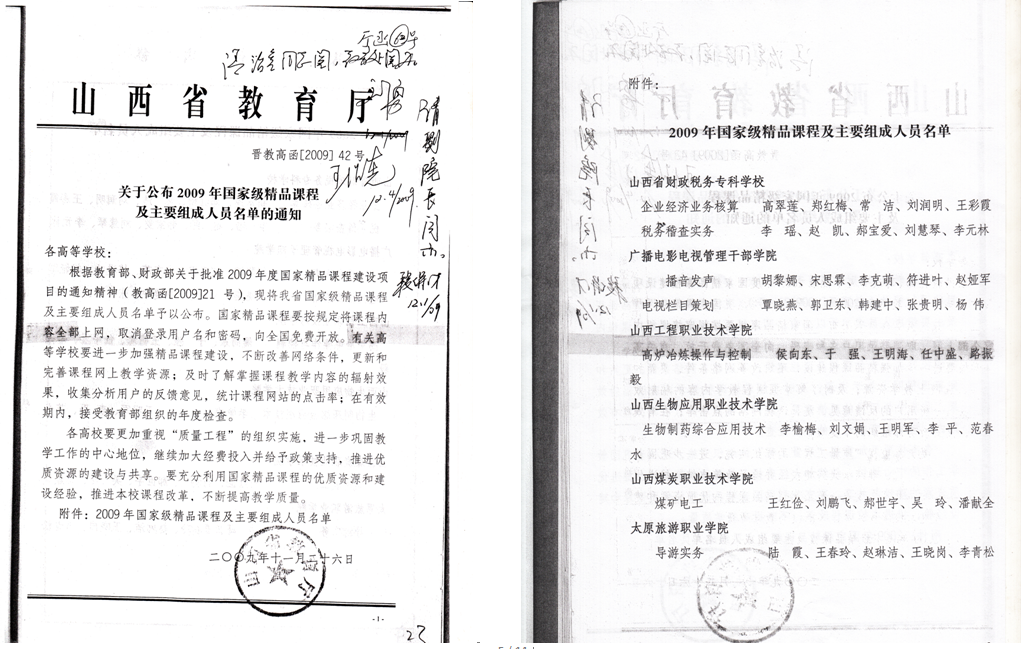 山西省教育厅
晋教高函[2009] 42 号
关于公布 2009 年国家级精品课程
及主要组成人员名单的通知
各高等学校：
根据教育部、财政部关于批准 2009 年度国家精品课程建设项
目的通知精神（教高函[2009]21 号），现将我省国家级精品课程
及主要组成人员名单予以公布。国家精品课程要按规定将课程内
容全部上网，取消登录用户名和密码，向全国免费开放。有关高
等学校要进一步加强精品课程建设，不断改善网络条件，更新和
完善课程网上教学资源；及时了解掌握课程教学内容的辐射效
果，收集分析用户的反馈意见，统计课程网站的点击率；在有效
期内，接受教育部组织的年度检查。
各高校要更加重视“质量工程”的组织实施，进一步巩固教
学工作的中心地位，继续加大经费投入并给予政策支持，推进优
质资源的建设与共享。要充分利用国家精品课程的优质资源和建
设经验，推进本校课程改革，不断提高教学质量。
附件：2009 年国家级精品课程及主要组成人员名单
二〇〇九年十一月二十六日
27
附件：
2009 年国家级精品课程及主要组成人员名单
山西省财政税务专科学校
企业经济业务核算 高翠莲、郑红梅、常 洁、刘润明、王彩霞
税务稽查实务 李 瑶、赵 凯、郝宝爱、刘慧琴、李元林
广播电影电视管理干部学院
播音发声 胡黎娜、宋思霖、李克萌、符进叶、赵娅军
电视栏目策划 覃晓燕、郭卫东、韩建中、张贵明、杨 伟
山西工程职业技术学院
高炉冶炼操作与控制 侯向东、于 强、王明海、任中盛、路振
毅
山西生物应用职业技术学院
生物制药综合应用技术 李榆梅、刘文娟、王明军、李 平、范春
水
山西煤炭职业技术学院
煤矿电工 王红俭、刘鹏飞、郝世宇、吴 玲、潘献全
太原旅游职业学院
导游实务 陆 霞、王春玲、赵琳洁、王晓岗、李青松